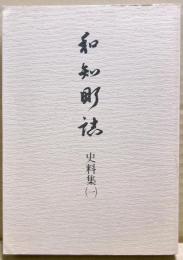 和知町誌
史料集(一)